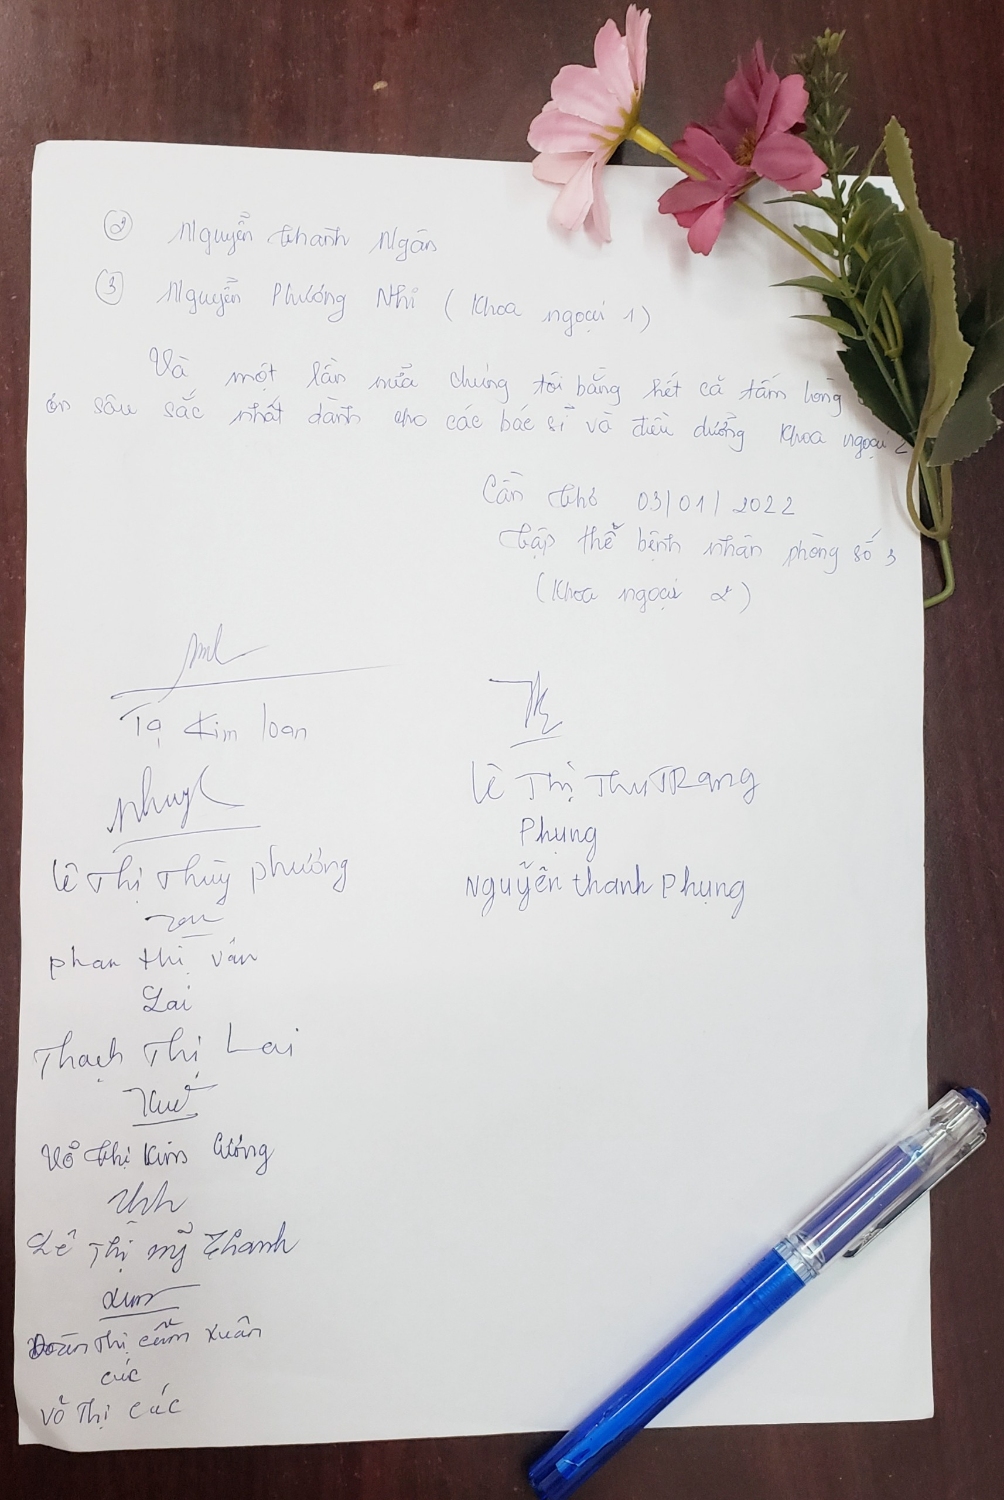 ② Nguyễn Thanh Ngân
③ Nguyễn Phương Nhi (Khoa ngoại 1)
Và một lần nữa chúng tôi bằng hết cả tấm lòng
ơn sâu sắc nhất dành cho các bác sĩ và điều dưỡng Khoa ngoại 2
Cần Thơ 03/01/2022
Tập thể bệnh nhân phòng số 3
(Khoa ngoại 2)
Tạ Kim Loan
Lê Thị Thu TRang
Phụng
Lê Thị Thùy Phương
Nguyễn Thanh Phụng
Phan Thị Vân
Lai
Thạch Thị Lai
Võ Thị Kim Cương
Lê Thị Mỹ Thanh
Đoàn Thị Cẩm Xuân
Cúc
Võ Thị Cúc